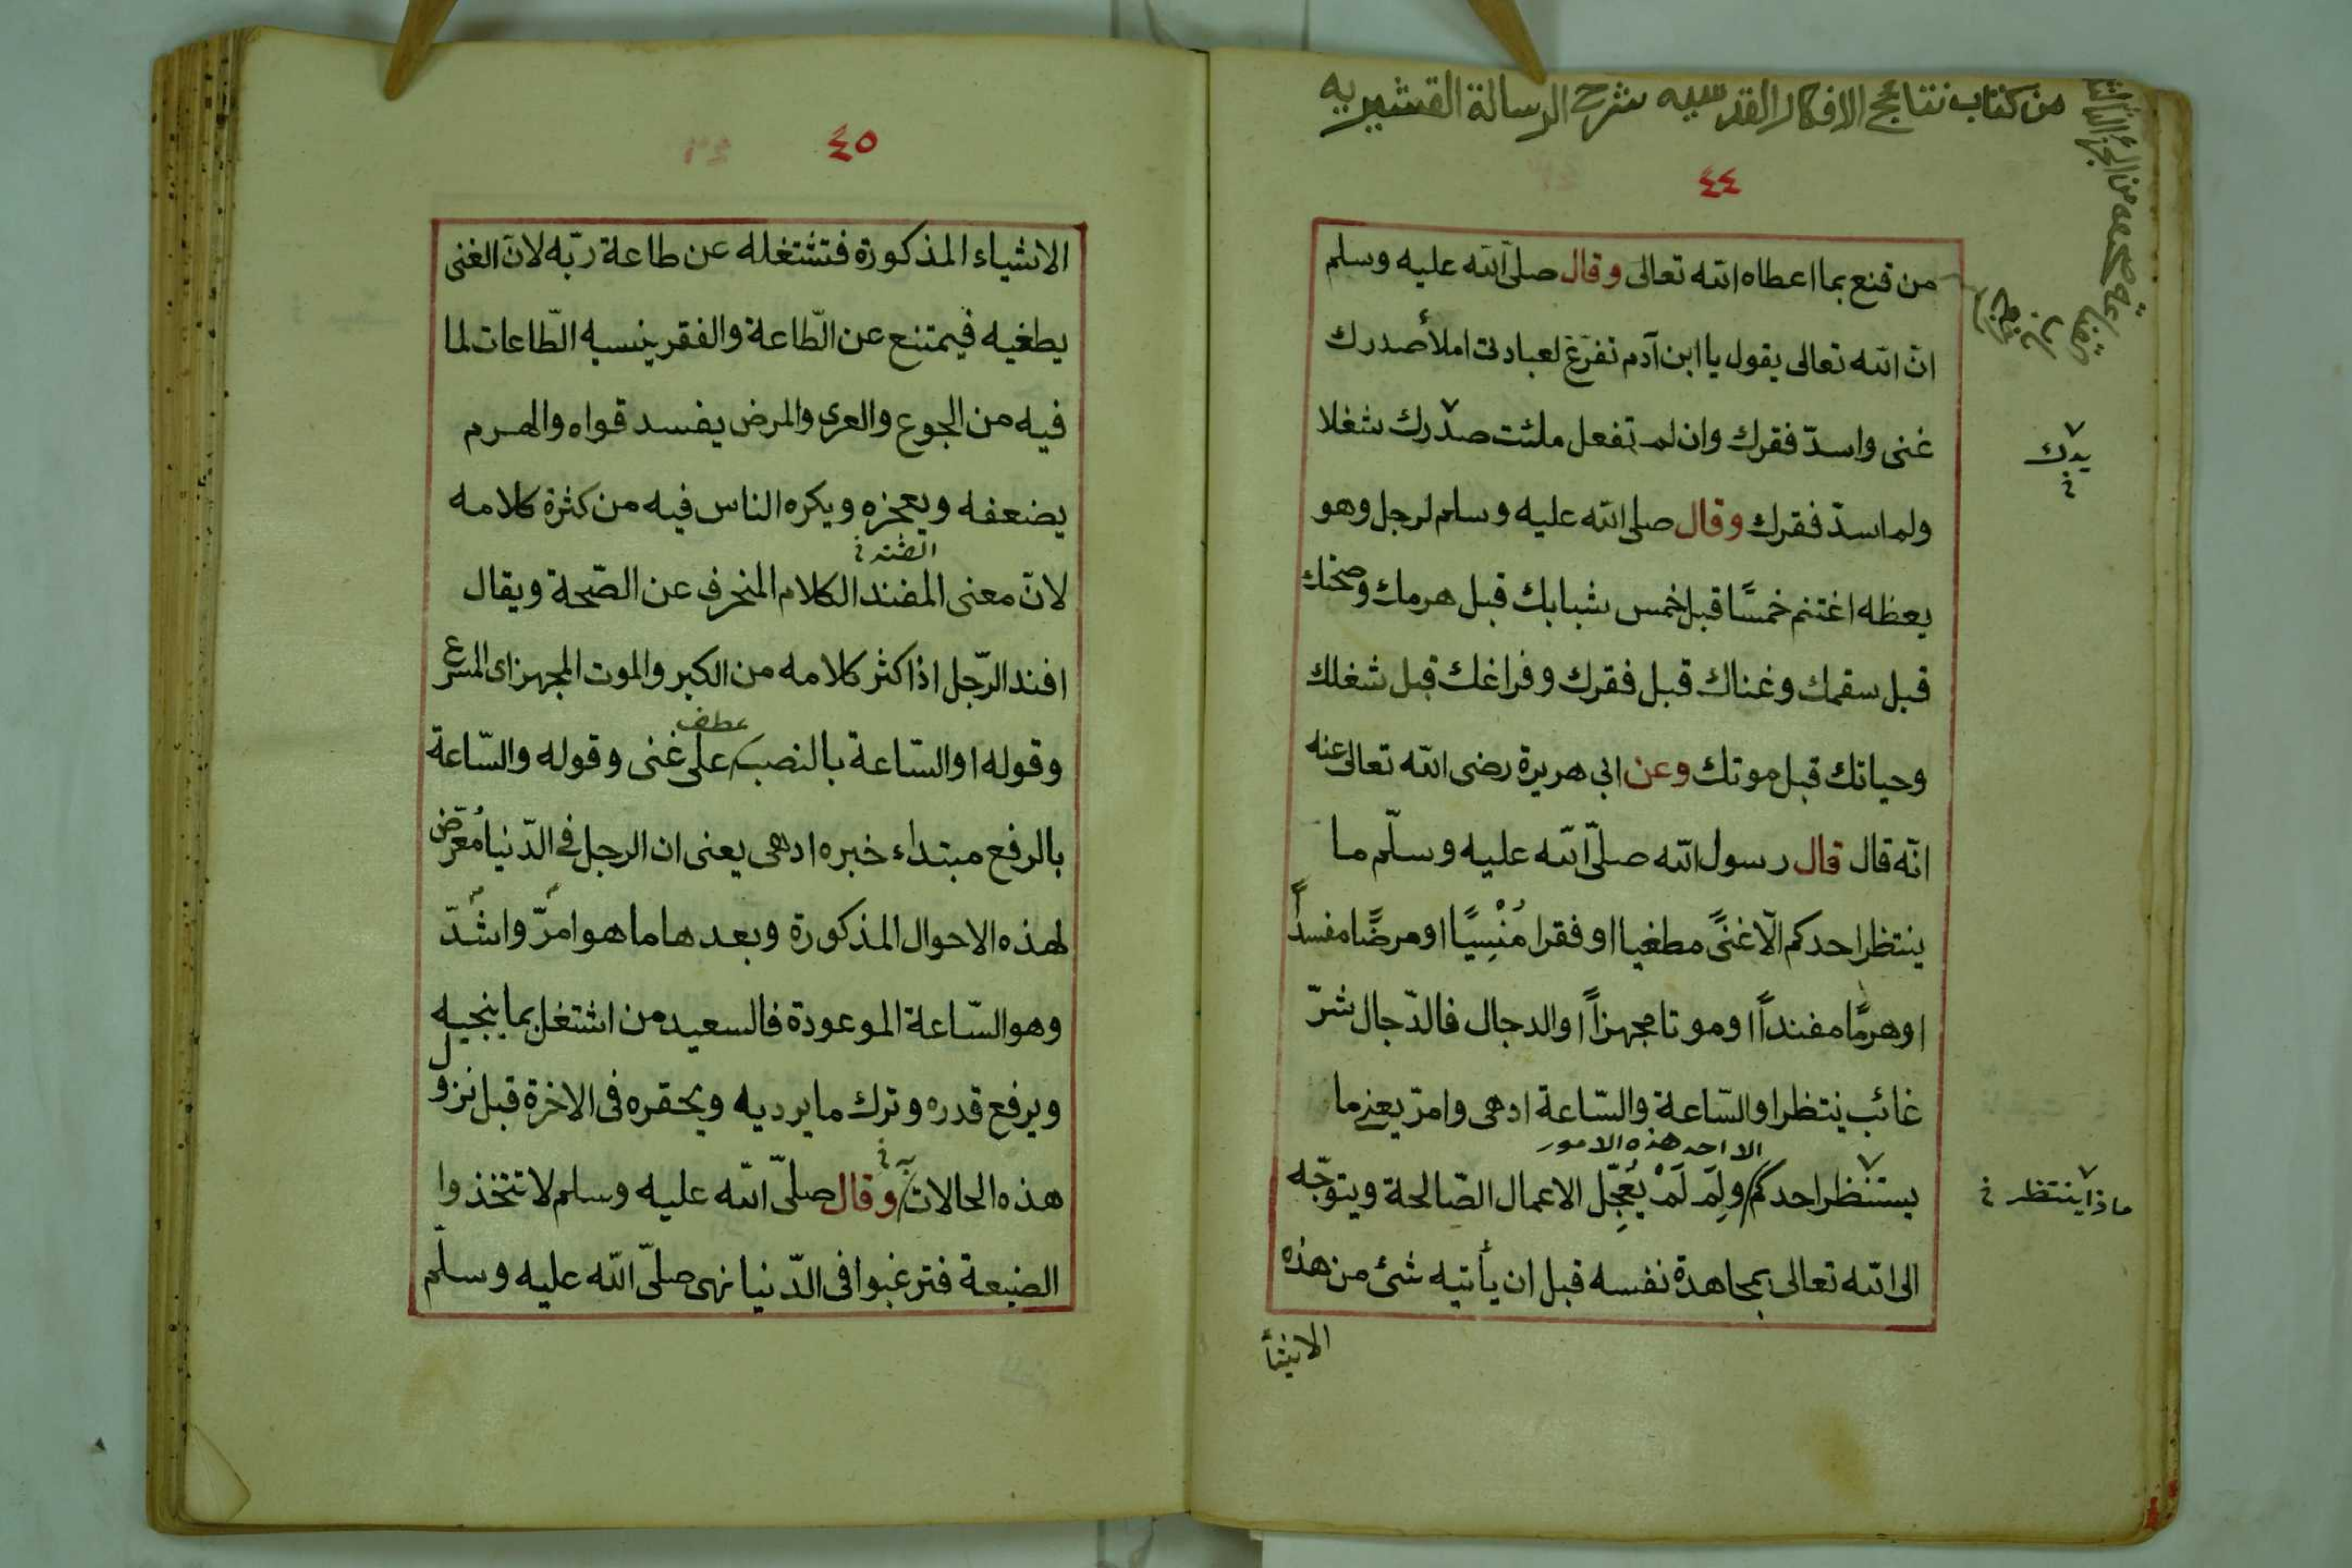 من كتاب نتائج الافكار القدسيه شرح الرسالة القشيريه
٤٤
من قنع بما اعطاه الله تعالى وقال صلى الله عليه وسلم
انّ الله تعالى يقول يا ابن آدم تفرّغ لعبادتى املأ صدرك
غنى واسدّ فقرك وان لم تفعل ملئت صدرك شغلا
يدك
ولم اسدّ فقرك وقال صلى الله عليه وسلم لرجل وهو
يعظه اغتنم خمسًا قبل خمس شبابك قبل هرمك وصحتك
قبل سقمك وغناك قبل فقرك وفراغك قبل شغلك
وحياتك قبل موتك وعن ابى هريرة رضى الله تعالى عنه
انّه قال قال رسول الله صلّى الله عليه وسلّم ما
ينتظر احدكم الّا غنىً مطغيا او فقرا مُنْسِيًا او مرضًا مفسداً
او هرمًا مفنداً او موتا مجهزاً او الدجال فالدّجال شرّ
غائب ينتظر او السّاعة والسّاعة ادهى وامرّ يعنى ما
الا احد هذه الامور
يستنظر احدكم ولِمَ لَمْ يُعَجِّل الاعمال الصّالحة ويتوجّه
ماذا ينتظر
الى الله تعالى بمجاهدة نفسه قبل ان يأتيه شئ من هذه
الاشيأ
٤٥
الاشياء المذكورة فتشتغله عن طاعة ربّه لانّ الغنى
يطغيه فيمتنع عن الطّاعة والفقر ينسيه الطّاعات لما
فيه من الجوع والعرى والمرض يفسد قواه والهرم
يضعفه ويعجزه ويكره الناس فيه من كثرة كلامه
لانّ معنى المفند الكلام المنحرف عن الصّحة ويقال
افند الرّجل اذا كثر كلامه من الكبر والموت المجهز اى المسرع
عطف
وقوله او السّاعة بالنصب على غنى وقوله والسّاعة
بالرفع مبتداء خبره ادهى يعنى ان الرجل فى الدّنيا مُعرّض
لهذه الاحوال المذكورة وبعدها ما هو امرّ واشدّ
وهو السّاعة الموعودة فالسعيد من اشتغل بما ينجيه
ويرفع قدره وترك ما يرديه ويحقره فى الاخرة قبل نزول
هذه الحالات وقال صلّى الله عليه وسلم لا تتخذوا
الضيعة فترغبوا فى الدّنيا نهى صلّى الله عليه وسلّم